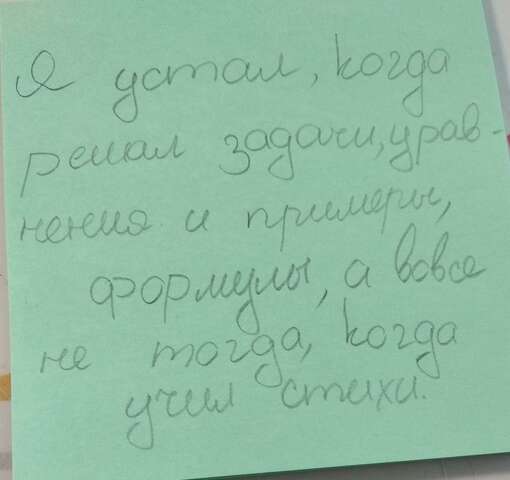 Я устал, когда
решал задачи, урав-
нения и примеры,
формулы, а вовсе
не тогда, когда
учил стихи.